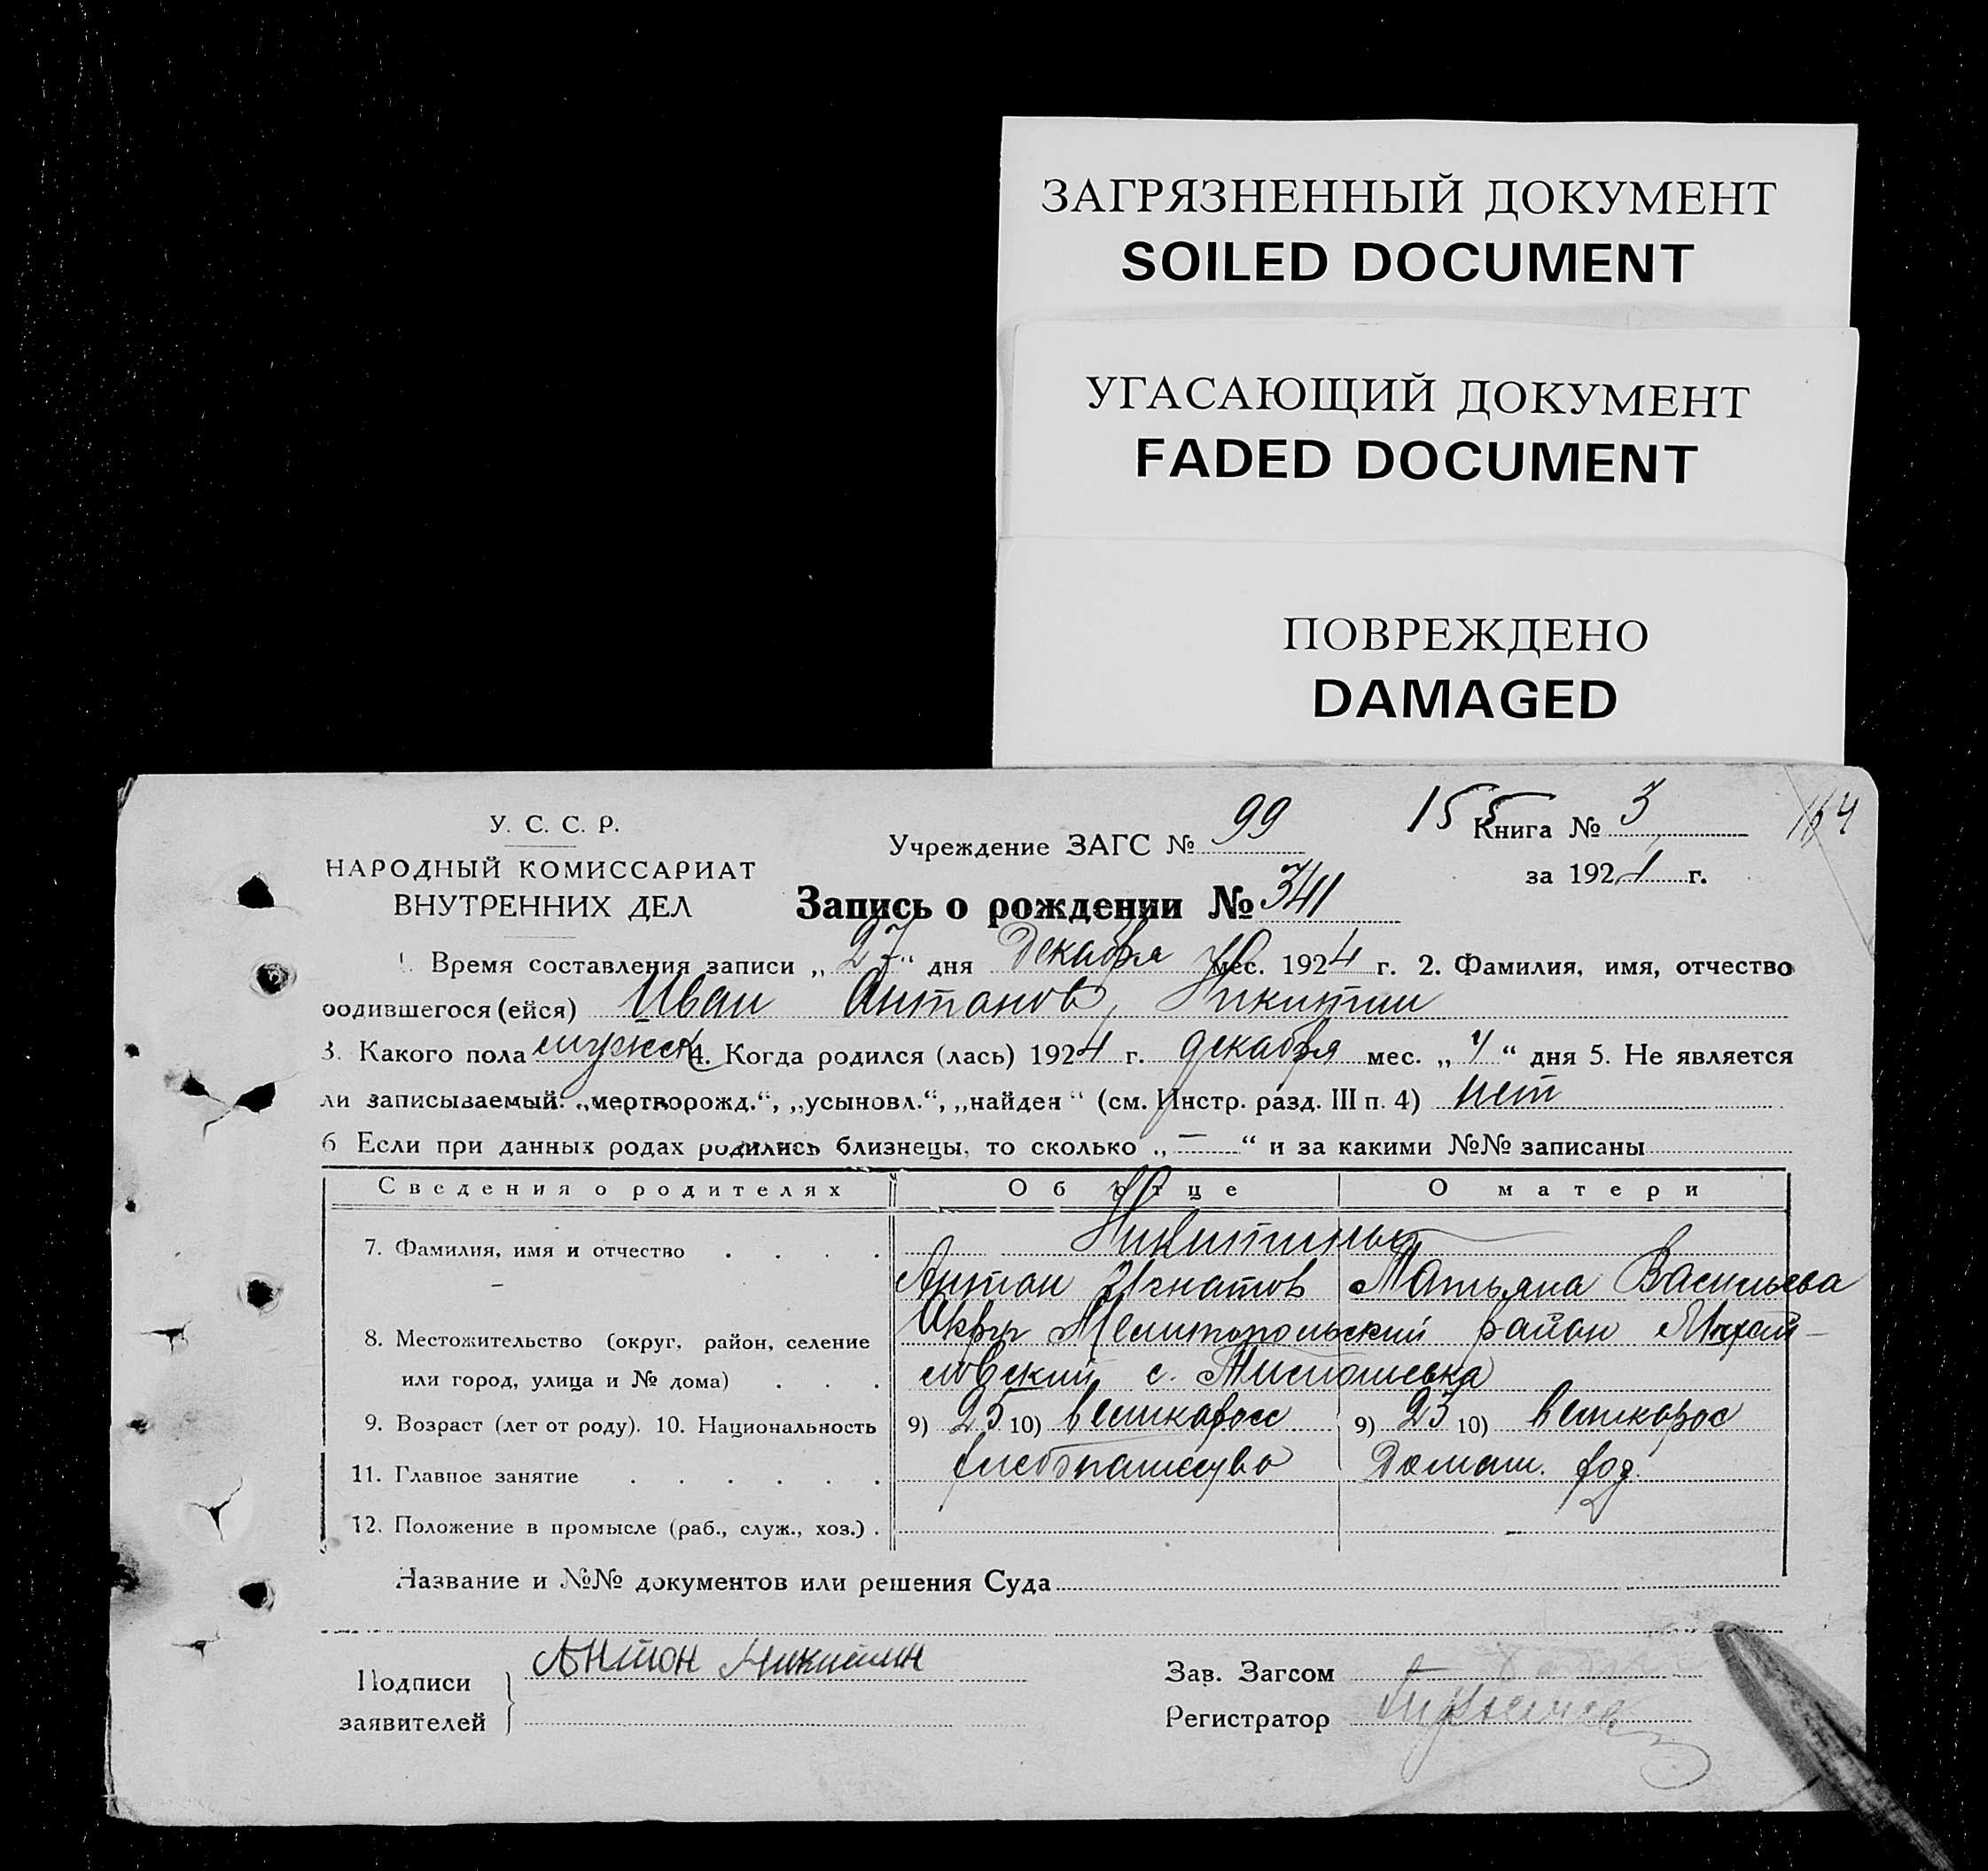 ЗАГРЯЗНЕННЫЙ ДОКУМЕНТ
SOILED DOCUMENT
УГАСАЮЩИЙ ДОКУМЕНТ
FADED DOCUMENT
ПОВРЕЖДЕНО
DAMAGED
У. С. С. Р.
НАРОДНЫЙ КОМИССАРИАТ
ВНУТРЕННИХ ДЕЛ
Учреждение ЗАГС № 99
155 Книга № 3 164
за 1924 г.
Запись о рождении № 341
1. Время составления записи „27“ дня Декабря мес. 1924 г. 2. Фамилия, имя, отчество
родившегося (ейся) Иван Антонов Никитин
3. Какого пола мужск 4. Когда родился (лась) 1924 г. декабря мес. „4“ дня 5. Не является
ли записываемый: „мертворожд.“, „усыновл.“, „найден“ (см. Инстр. разд. III п. 4) нет
6 Если при данных родах родились близнецы, то сколько „—“ и за какими №№ записаны
Сведения о родителях Об отце О матери
7. Фамилия, имя и отчество . . . . Никитины
Антон Игнатов Татьяна Васильева
8. Местожительство (округ, район, селение Округ Мелитопольский район Михай-
или город, улица и № дома) . . . ловский с.
9. Возраст (лет от роду). 10. Национальность 9) 25 10) великоросс 9) 23 10) великорос
11. Главное занятие . . . . . . хлебопашество Домаш.
12. Положение в промысле (раб., служ., хоз.) .
Название и №№ документов или решения Суда
Подписи заявителей Антон Никитин
Зав. Загсом
Регистратор